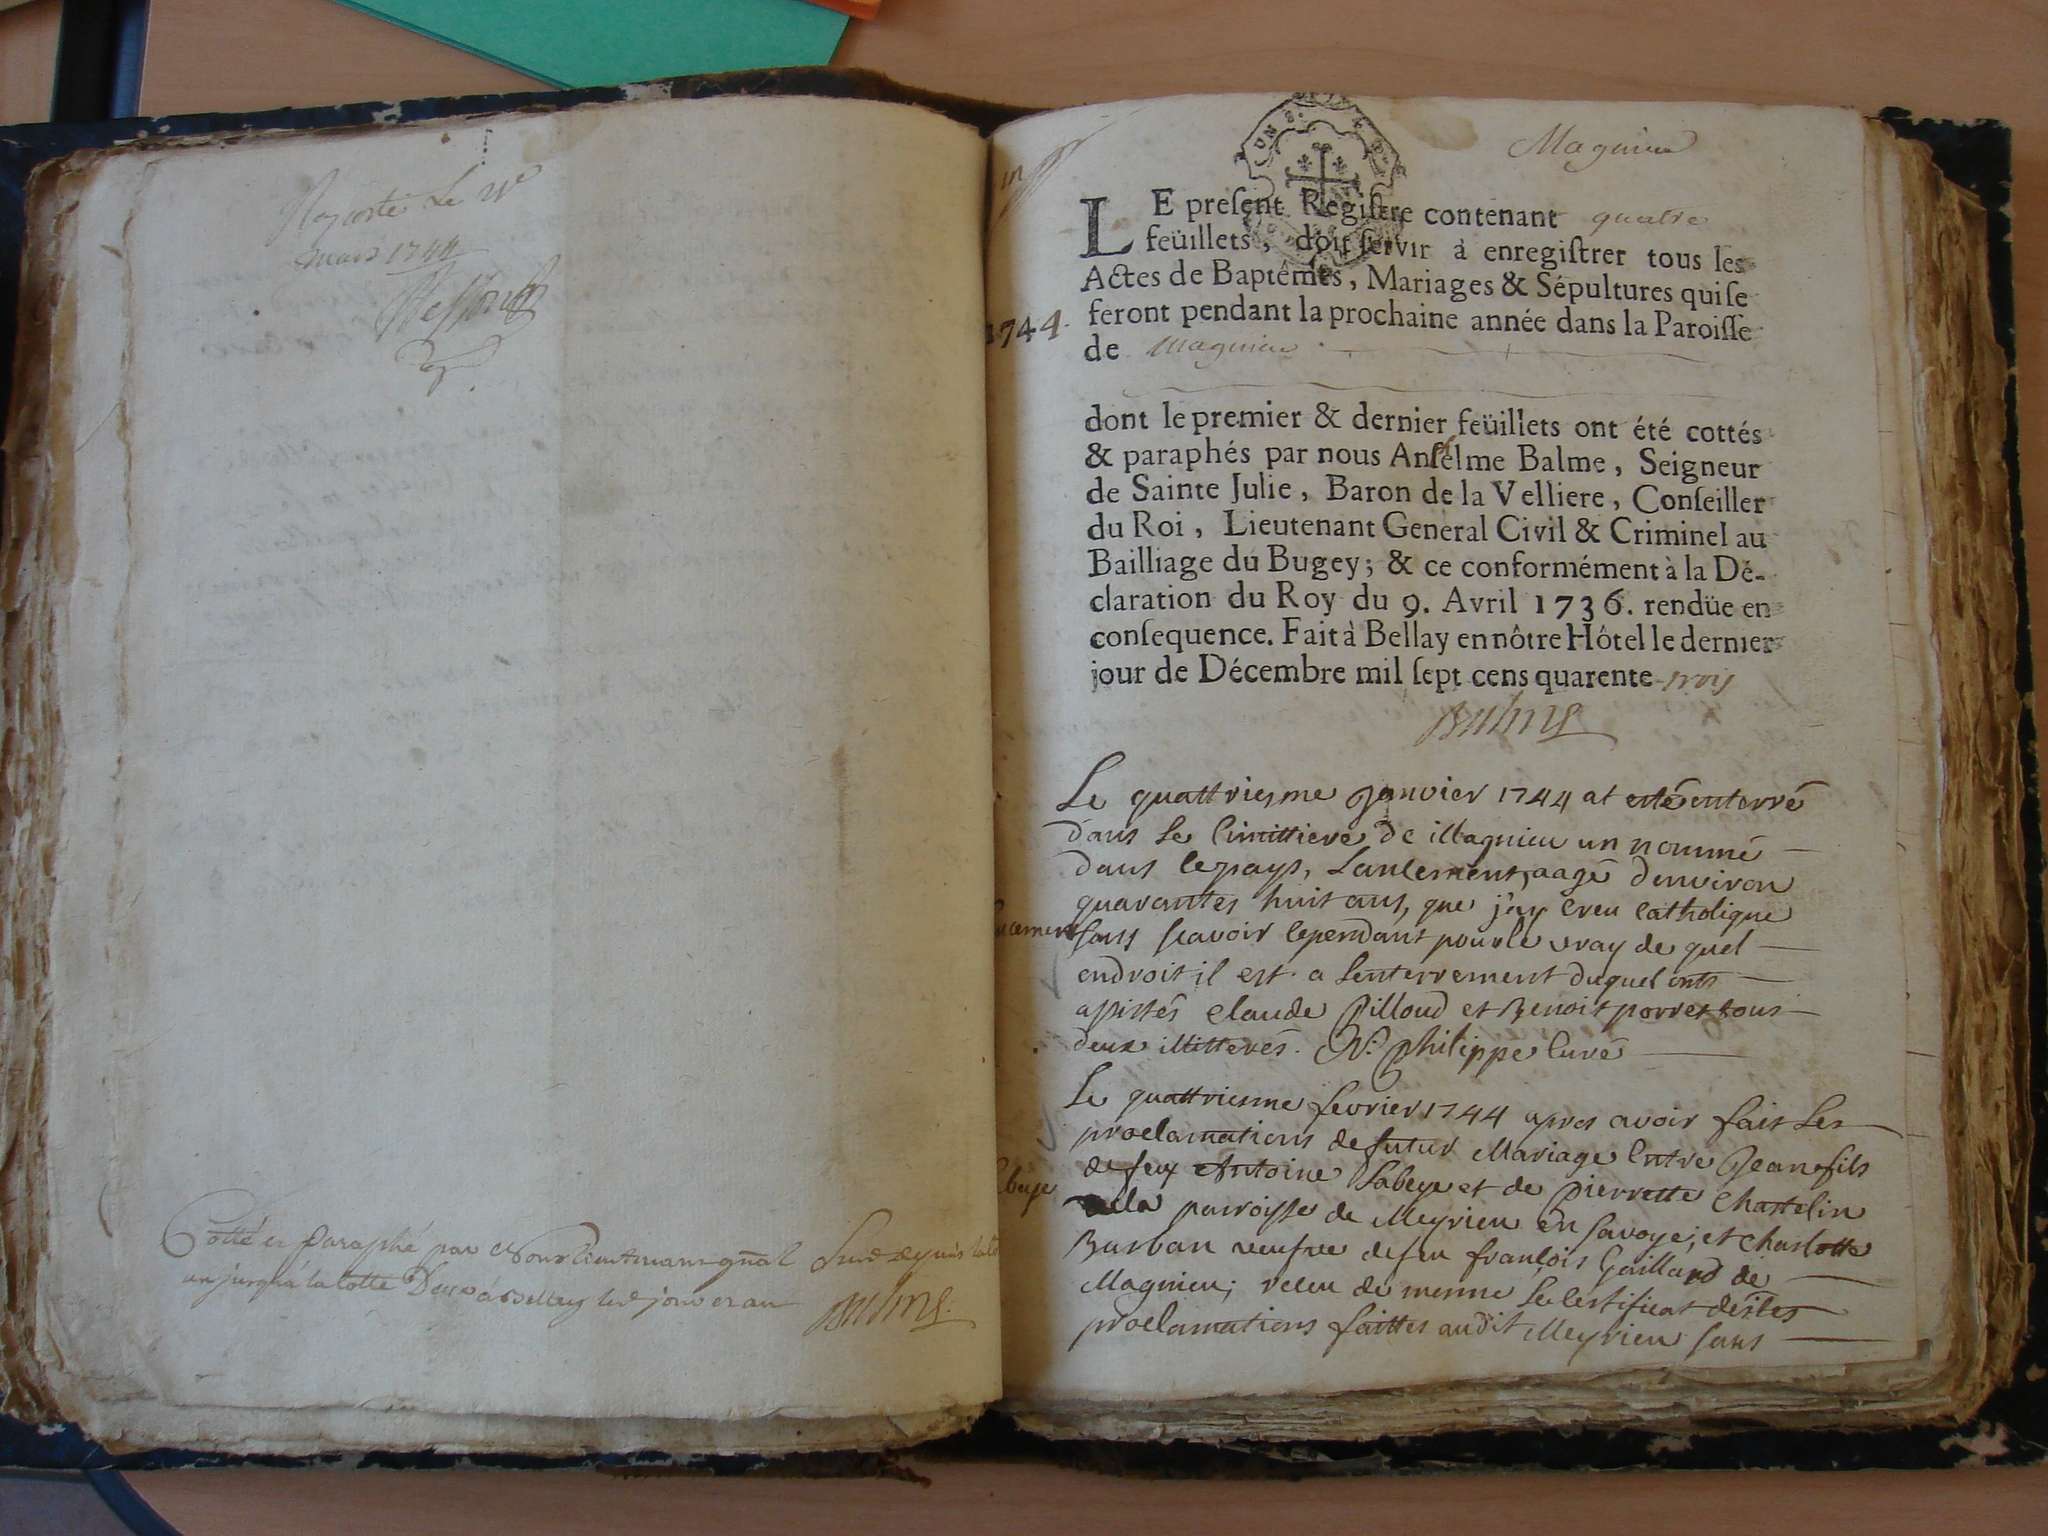 mars 1744
Cotté et Paraphé par Nous Lieutenant gnal
un jusqu'à la Cotte
Balme
Magnieu
1744.
LE preſent Regiſtre contenant quatre
feüillets, doit ſervir à enregiſtrer tous les
Actes de Baptêmes, Mariages & Sépultures qui ſe
feront pendant la prochaine année dans la Paroiſſe
de Magnieu
dont le premier & dernier feüillets ont été cottés
& paraphés par nous Anſelme Balme, Seigneur
de Sainte Julie, Baron de la Velliere, Conſeiller
du Roi, Lieutenant General Civil & Criminel au
Bailliage du Bugey; & ce conformément à la Dé-
claration du Roy du 9. Avril 1736. rendüe en
conſequence. Fait à Bellay en nôtre Hôtel le dernier
jour de Décembre mil ſept cens quarente trois
Balme
Le quattriesme Janvier 1744 at esté enterré
dans le Cimittiere de Magnieu un nommé
dans le pays, aagé d'environ
quarantes huit ans, que j'ay creu Catholique
sans scavoir cependant pour le vray de quel
endroit il est. a l'enterrement duquel onts
assistés Claude Pilloud et Benoit porret tous
deux illitterés. N. Philippe Curé
Le quattriesme fevrier 1744 apres avoir fait les
proclamations de futur Mariage Entre Jean fils
de feux Antoine Labeye et de Pierrette Chastelin
de la parroisse de Meyrieu en Savoye, et Charlotte
Barban veufve de feu françois Gaillard de
Magnieu; receu de mesme le Certificat desites
proclamations faittes audit Meyrieu sans